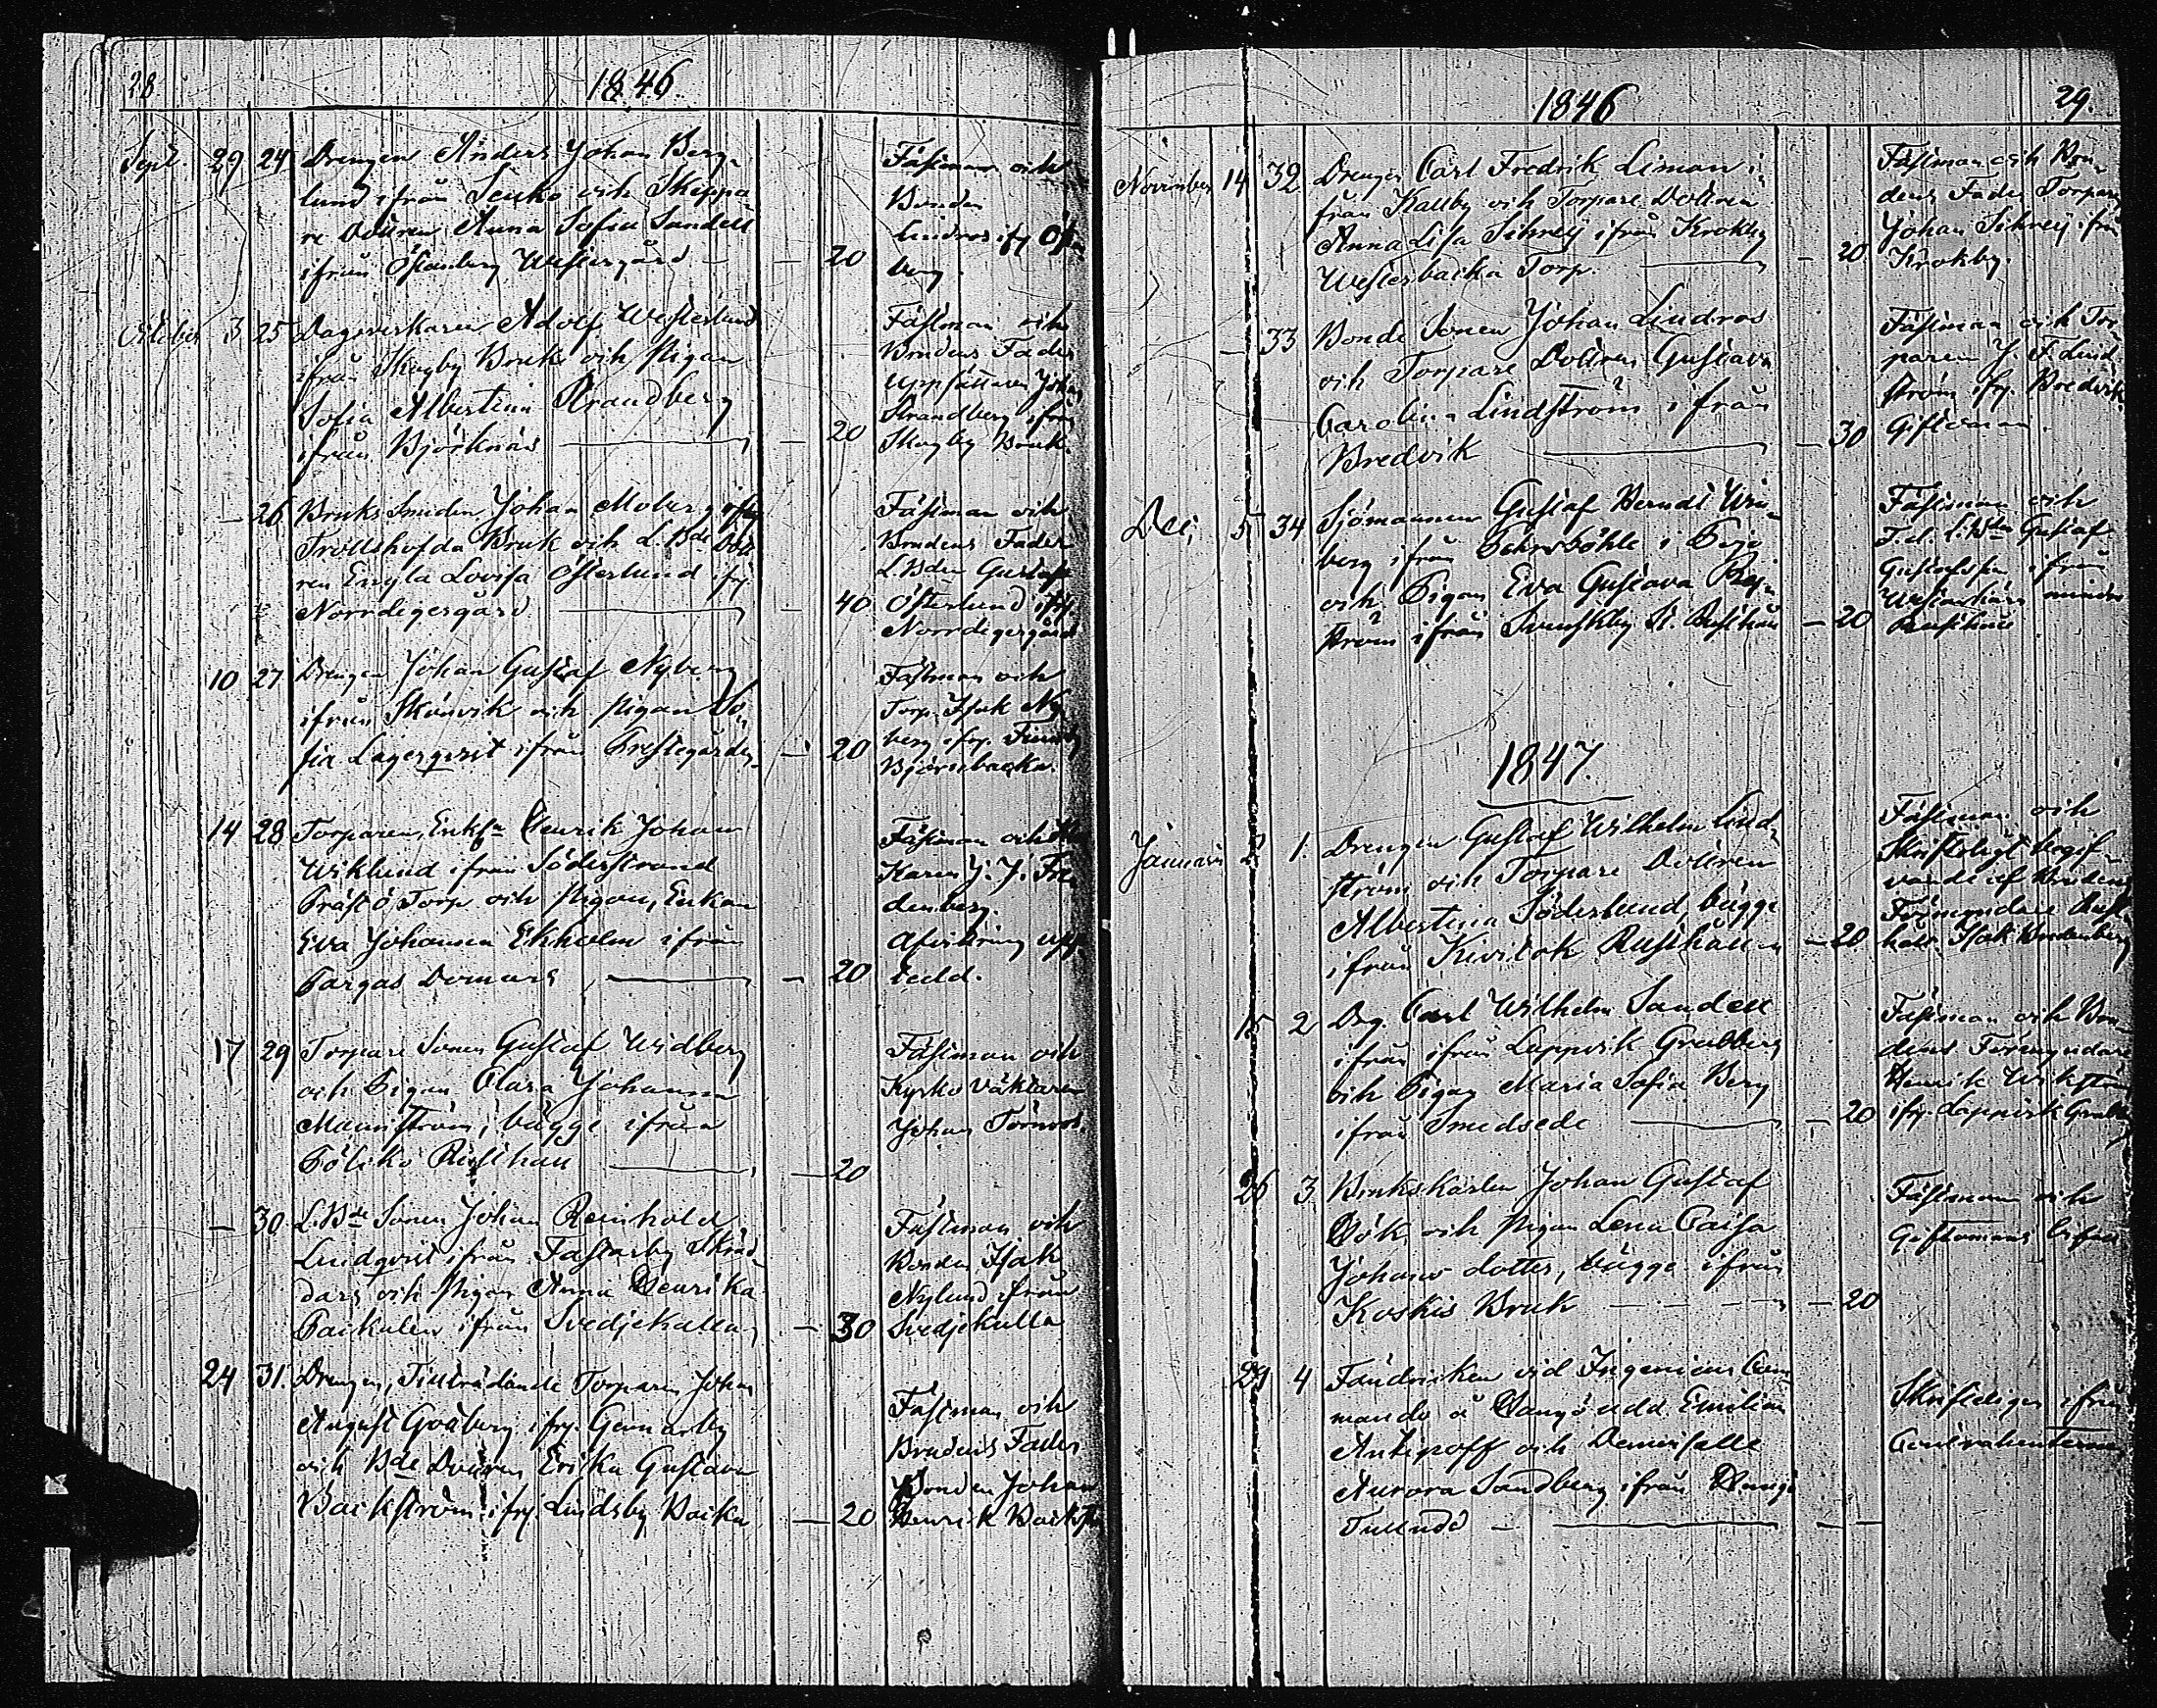 28
1846.
Sept. 29 24 Drengen Anders Johan Berg-
lund ifrån Tenko och Skeppa-
re Dottren Anna Sofia Sandell
ifrån Östanberg Westergård — 20
Fästman och
Bonden
Lindros ifr Östan
berg.
October 3 25 Dagsverkaren Adolf Westerlund
ifrån Skogby Bruk och Pigan
Sofia Albertina Strandberg
ifrån Björknäs — 20
Fästman och
Brudens Fader
Uppsättaren Johan
Strandberg ifrån
Skogby Bruk.
— 26 Bruks Smeden Johan Moberg ifrån
Trollshofda Bruk och L. Bde Dott
ren Engla Lovisa Österlund ifr.
Norrdegergård — 40
Fästman och
Brudens Fader
L. Bden Gustaf
Österlund ifr.
Norrdegergård
10 27 Drengen Johan Gustaf Nyberg
ifrån Skönvik och Pigan So-
fia Lagerqvist ifrån Prestegården — 20
Fästman och
Torp. Isak Ny-
berg ifr.
Björsbacka.
14 28 Torparen, Enkln Henrik Johan
Wiklund ifrån Söderstrand
Prästö Torp och Pigan, Enkan
Eva Johanna Ekholm ifrån
Pargas Domars — 20
Fästman och
Karin J. J. Fre
denberg.
Afvittring upp-
tedd.
17 29 Torpare Sonen Gustaf Widberg
och Pigan Clara Johanna
Mannström, bägge ifrån
Böliko Rusthåll — 20
Fästman och
Kyrko Väktaren
Johan Törnros.
— 30 L. Bde Sonen Johan Reinhold
Lindqvist ifrån Fastarby Skräd-
dars och Pigan Anna Henrika
Paikulen ifrån Svedjekulla — 30
Fästman och
Bonden Isak
Nylund ifrån
Svedjekulla
24 31. Drengen, Tillträdande Torparen Johan
August Groberg ifr. Gennarby
och Bde Dottren Erika Gustava
Backström ifr. Lindsby Backa — 20
Fästman och
Brudens Fader
Bonden Johan
Henrik Backstr
1846
29.
November 14 32 Drengen Carl Fredrik Liman i-
från Kallby och Torpare Dottren
Anna Lisa Schreij ifrån Krokby
Westerbacka Torp. — 20
Fästman och Bru-
dens Fader Torpare
Johan Schreij ifrån
Krokby.
— 33 Bonde Sonen Johan Lindros
och Torpare Dottren Gustava
Carolina Lindström ifrån
Bredvik — 30
Fästman och Tor-
paren J. F. Lind
ström ifr. Bredvik
Giftoman.
Dec; 5 34 Sjömannen Gustaf Berndt Win-
berg ifrån i
och Pigan Eva Gustava
ström ifrån Svenskby St. Rusthåll — 20
Fästman och
F.d. L. Bdn Gustaf
ifrån
Rusthåll
1847.
Januari 2 1. Drengen Gustaf Wilhelm Lind-
ström och Torpare Dottren
Albertina Söderlund, bägge
ifrån Kivitok Rusthåll — 20
Fästman och
Skriftligt begif-
vande af Brudens
Förmyndare Rust-
håll. Isak
15 2 Drg. Carl Wilhelm Sandell
ifrån ifrån Lappvik Grabbeg
och Pigan Maria Sofia Berg
ifrån Smedsede — 20
Fästman och Bru-
dens Förmyndare
Henrik Wikström
ifr. Lappvik Grabb
26 3 Brukskarlen Johan Gustaf
Öök och Pigan Lena Caisa
Johans dotter, bägge ifrån
Koskis Bruk — 20
Fästman och
Giftomans bifall
29 4 Fändriken vid Ingenieur Com
mando å Hangö udd Emilian
Antipoff och Demoiselle
Aurora Sandberg ifrån Hangö
Tulludd — —
Skriftligen ifrån
Contrahenterna